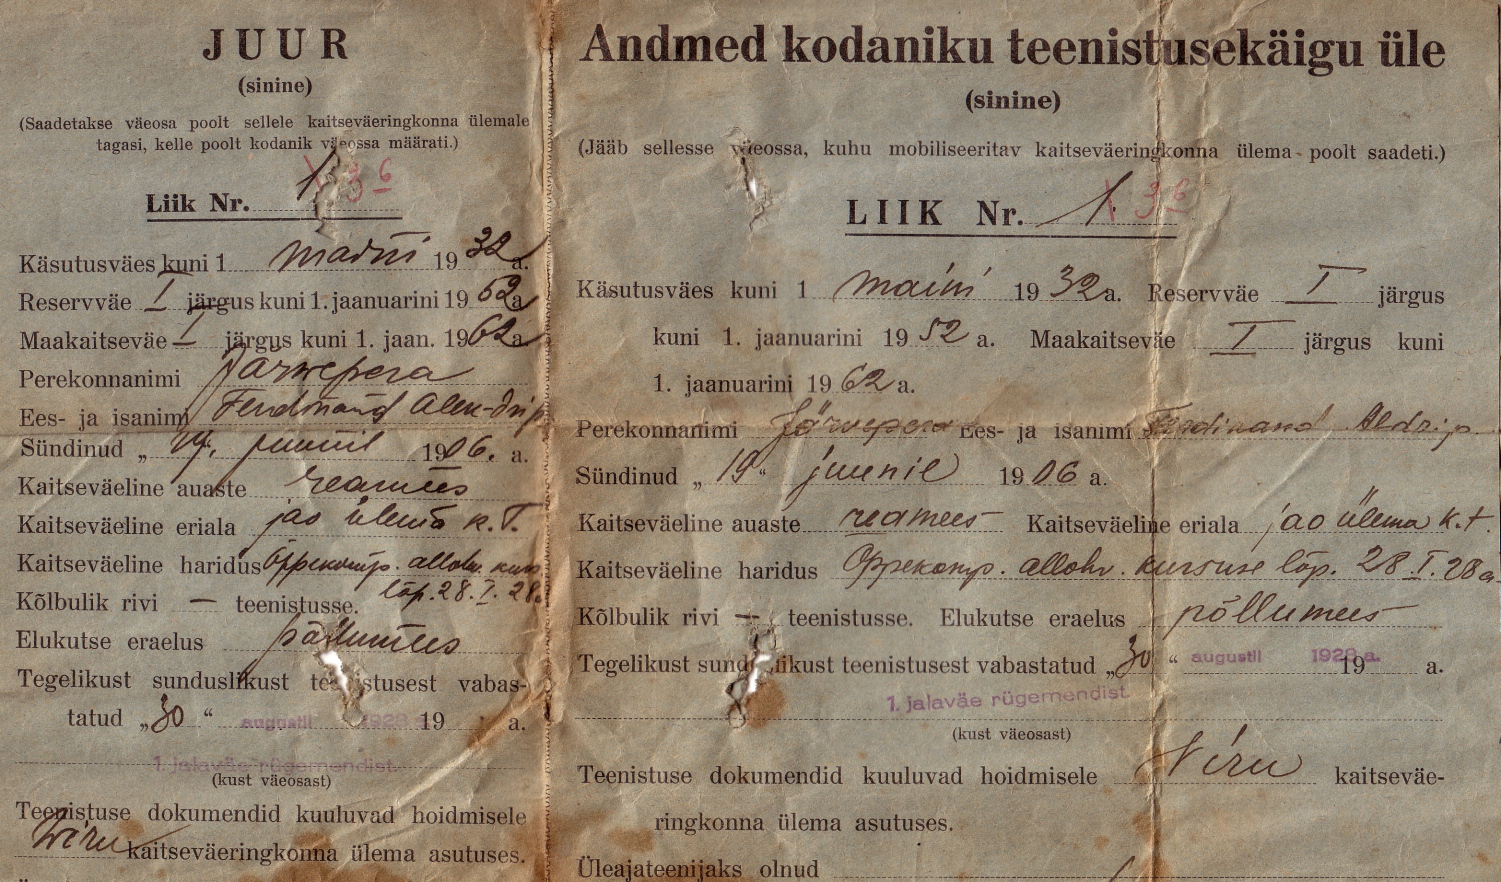 JUUR
(sinine)
(Saadetakse väeosa poolt sellele kaitseväeringkonna ülemale
tagasi, kelle poolt kodanik väeossa määrati.)
36
Liik Nr. 1
Käsutusväes kuni 1 1932 a.
Reservväe I järgus kuni 1. jaanuarini 1952 a
Maakaitseväe I järgus kuni 1. jaan. 1962 a
Perekonnanimi Järwepera
Ees- ja isanimi Ferdinand
Sündinud „19. juunil 1906. a.
Kaitseväeline auaste reamees
Kaitseväeline eriala jao ülema k.t.
Kaitseväeline haridus Õppekomp. allohv. kurs.
lõp. 28.I.28a
Kõlbulik rivi — teenistusse.
Elukutse eraelus põllumees
Tegelikust sunduslikust teenistusest vabas-
tatud „30“ augustil 1928 19 a.
1. jalaväe rügemendist
(kust väeosast)
Teenistuse dokumendid kuuluvad hoidmisele
Wiru kaitseväeringkonna ülema asutuses.
Andmed kodaniku teenistusekäigu üle
(sinine)
(Jääb sellesse väeossa, kuhu mobiliseeritav kaitseväeringkonna ülema poolt saadeti.)
36
LIIK Nr. 1
Käsutusväes kuni 1 1932 a. Reservväe I järgus
kuni 1. jaanuarini 1952 a. Maakaitseväe I järgus kuni
1. jaanuarini 1962 a.
Perekonnanimi Järwepera Ees- ja isanimi Ferdinand
Sündinud „19“ juunil 1906 a.
Kaitseväeline auaste reamees Kaitseväeline eriala jao ülema k.t.
Kaitseväeline haridus Õppekomp. allohv. kursuse lõp. 28.I.28a
Kõlbulik rivi — teenistusse. Elukutse eraelus põllumees
Tegelikust sunduslikust teenistusest vabastatud „30“ augustil 1928 a. 19 a.
1. jalaväe rügemendist
(kust väeosast)
Teenistuse dokumendid kuuluvad hoidmisele Viru kaitseväe-
ringkonna ülema asutuses.
Üleajateenijaks olnud